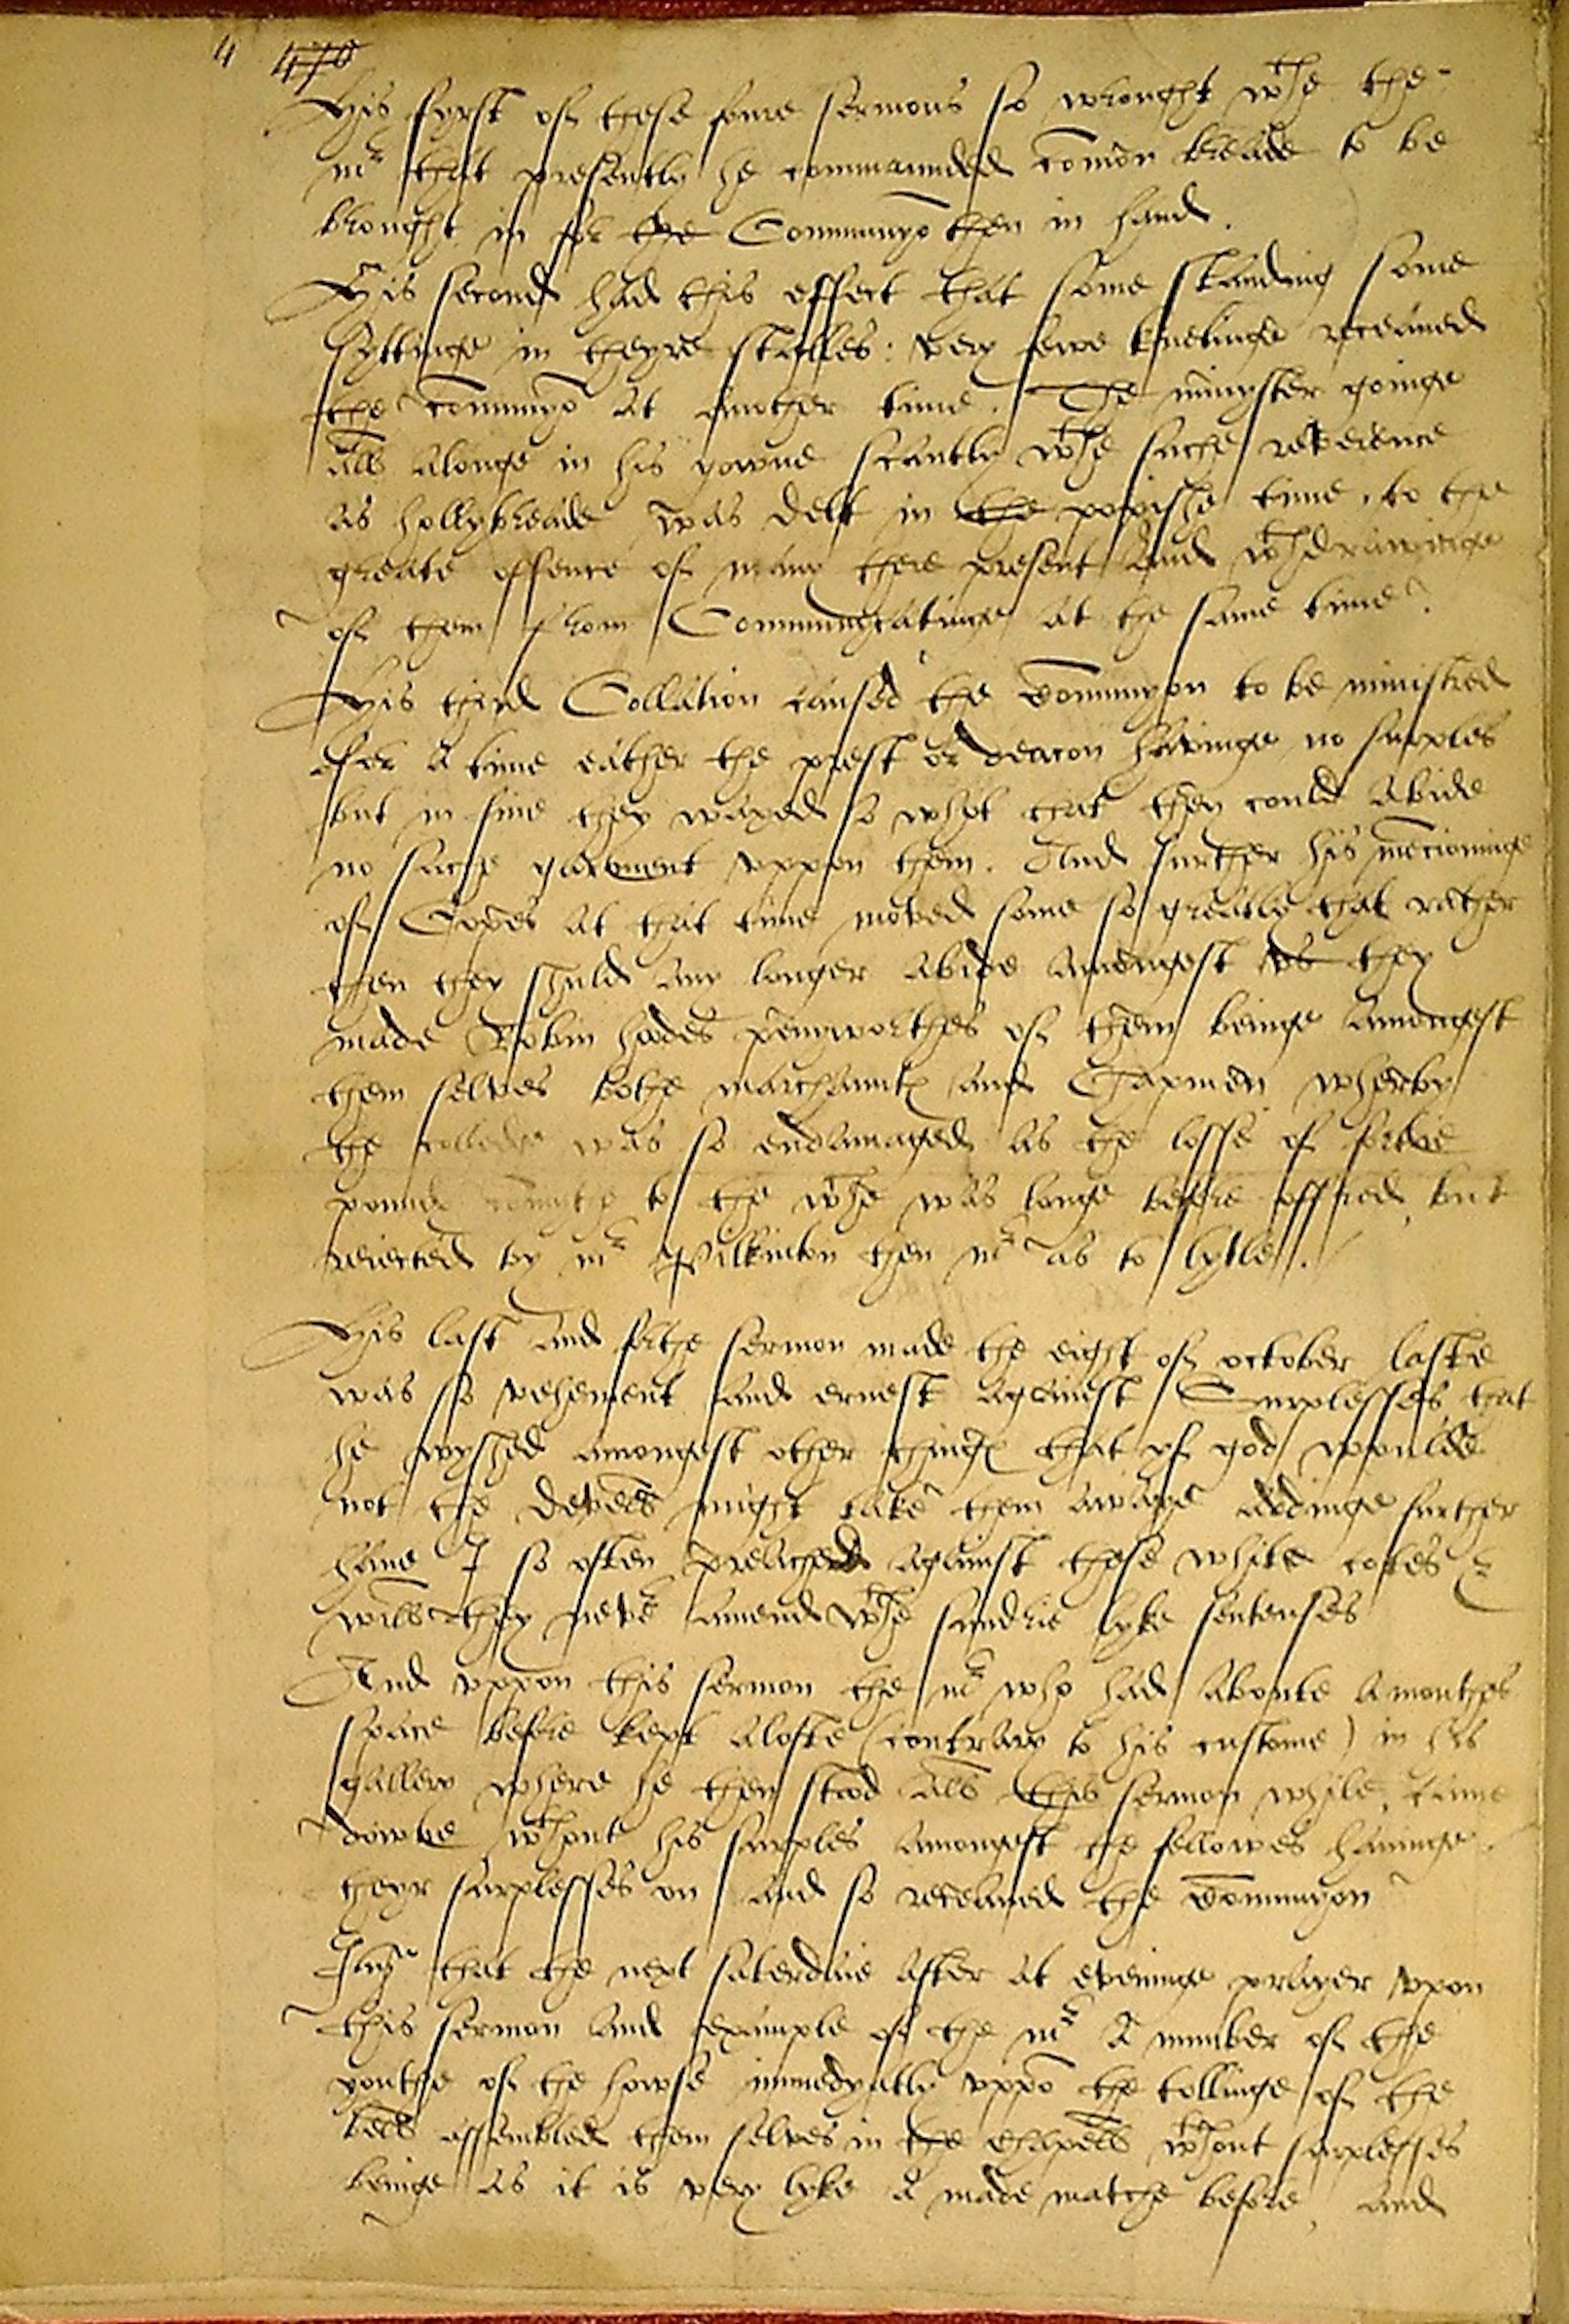 4 470
His fyrst of these fowre sermons so wrought wth the
mr that presently he commaunded comon breade to be
brought in for the Communyo then in hand.
His second had this effect that some standing some
syttinge in theyre stalles: very fewe knelinge receaued
the comunyo at another time. The minyster goinge
all alonge in his gowne scantly wth suche reverence
as hollybreade was delt in the popishe time, to the
greate offence of many there present and wthdrawinge
of them from Communycatinge at the same time.
His third Collation caused the Comunyon to be ministred
for a time eather the prest or deacon havinge no surples
but in fine they waxed so whot that then could abide
no suche garment vppon them. And further his mecioninge
of Copes at that time moved some so greatly that rather
then they shuld any longer abide amongest vs they
made Robin hodes penyworthes of them beinge amongest
them selves bothe marchauntes and Chapmen wherby
the colledge was so endamaged as the losse of fortie
pounde comythe to the wch was longe before offred, but
reiected by mr Pilkinton then mr as to lytle.
His last and forthe sermon made the eight of october laste
was so vehement and ernest againest Surplesses, that
he wyshed amongest other thinges that yf god woulde
not the devell might take them awaye addinge further
haue I so often preached against these white cotes &
will they never amend wth sundrie lyke sentenses
And vppon this sermon the mr who had aboute a monthes
space before kept alofte (contrary to his custome) in his
gallery where he then stood all this sermon while, came
downe wthout his surples amongest the fellowes hauinge
theyr surplesses on and so receaued the Comunyon
Itm that the next saterdaie after at eveninge prayer vpon
this sermon and example of the mr a number of the
youthe of the howse immedyatly vppo the tollinge of the
bell assembled them selves in the chapell wthout surplesses
beinge as it is very lyke a made matche before, and